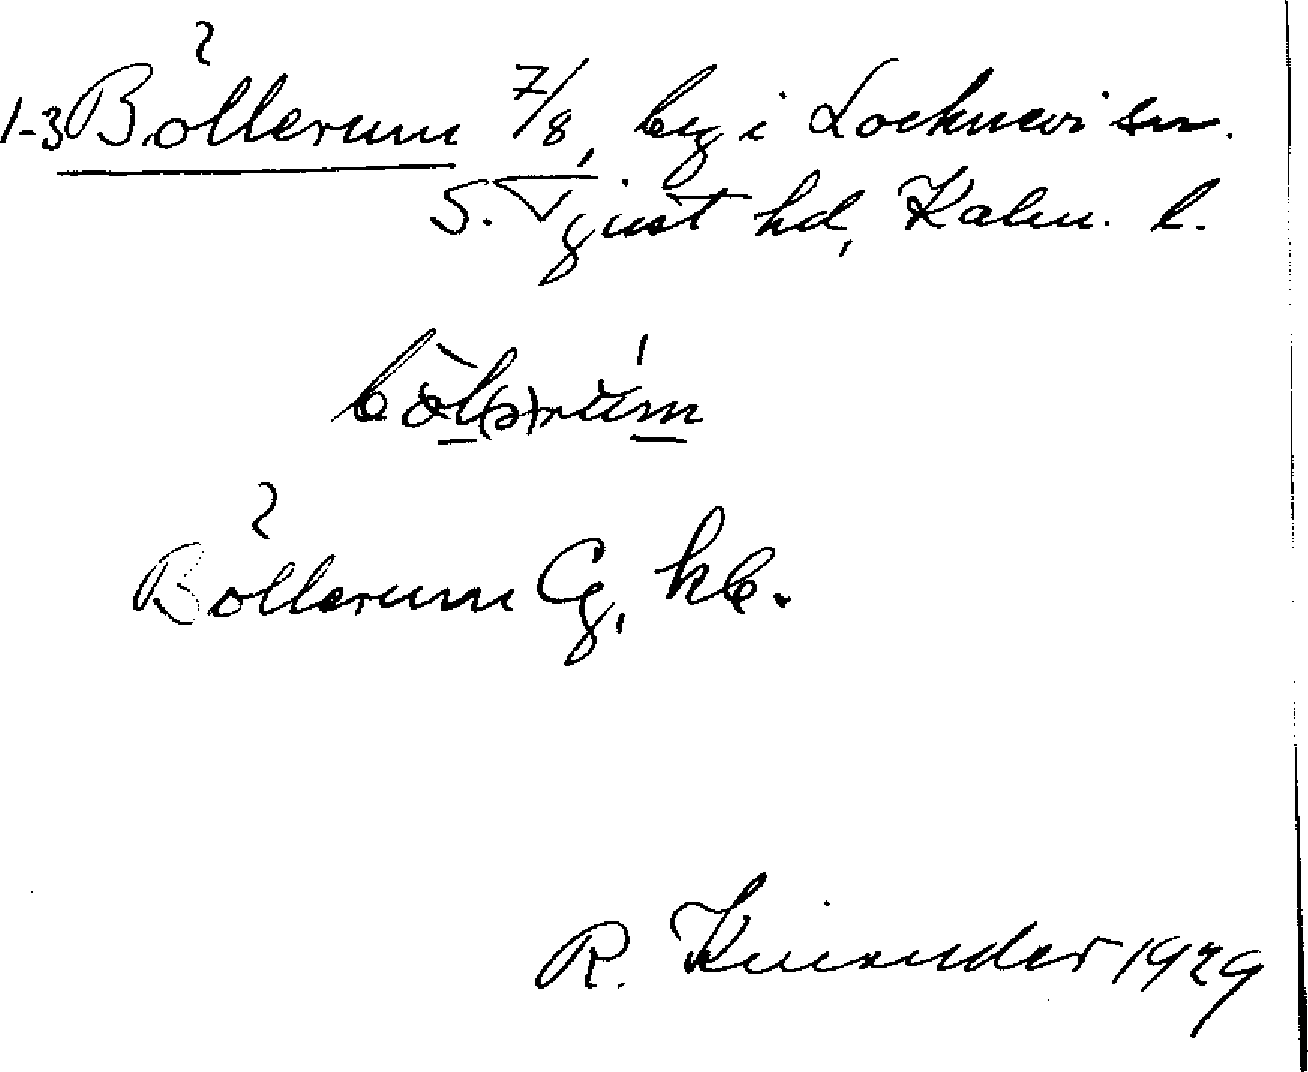 1-3 Böllerum 7/8, beg i Locknevi sn.
S. Tjust hd, Kalm. l.
böl(ə)rùm
Böllerum Cg, kb.
R. Kinander 1929